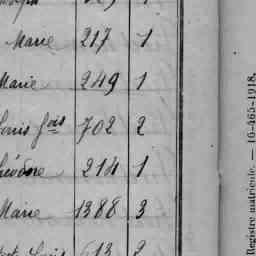 Marie 217 1
Marie 249 1
Louis fois 702 2
Théodore 214 1
Marie 1388 3
Louis 613 2
Registre matricule. — 16-465-1918.